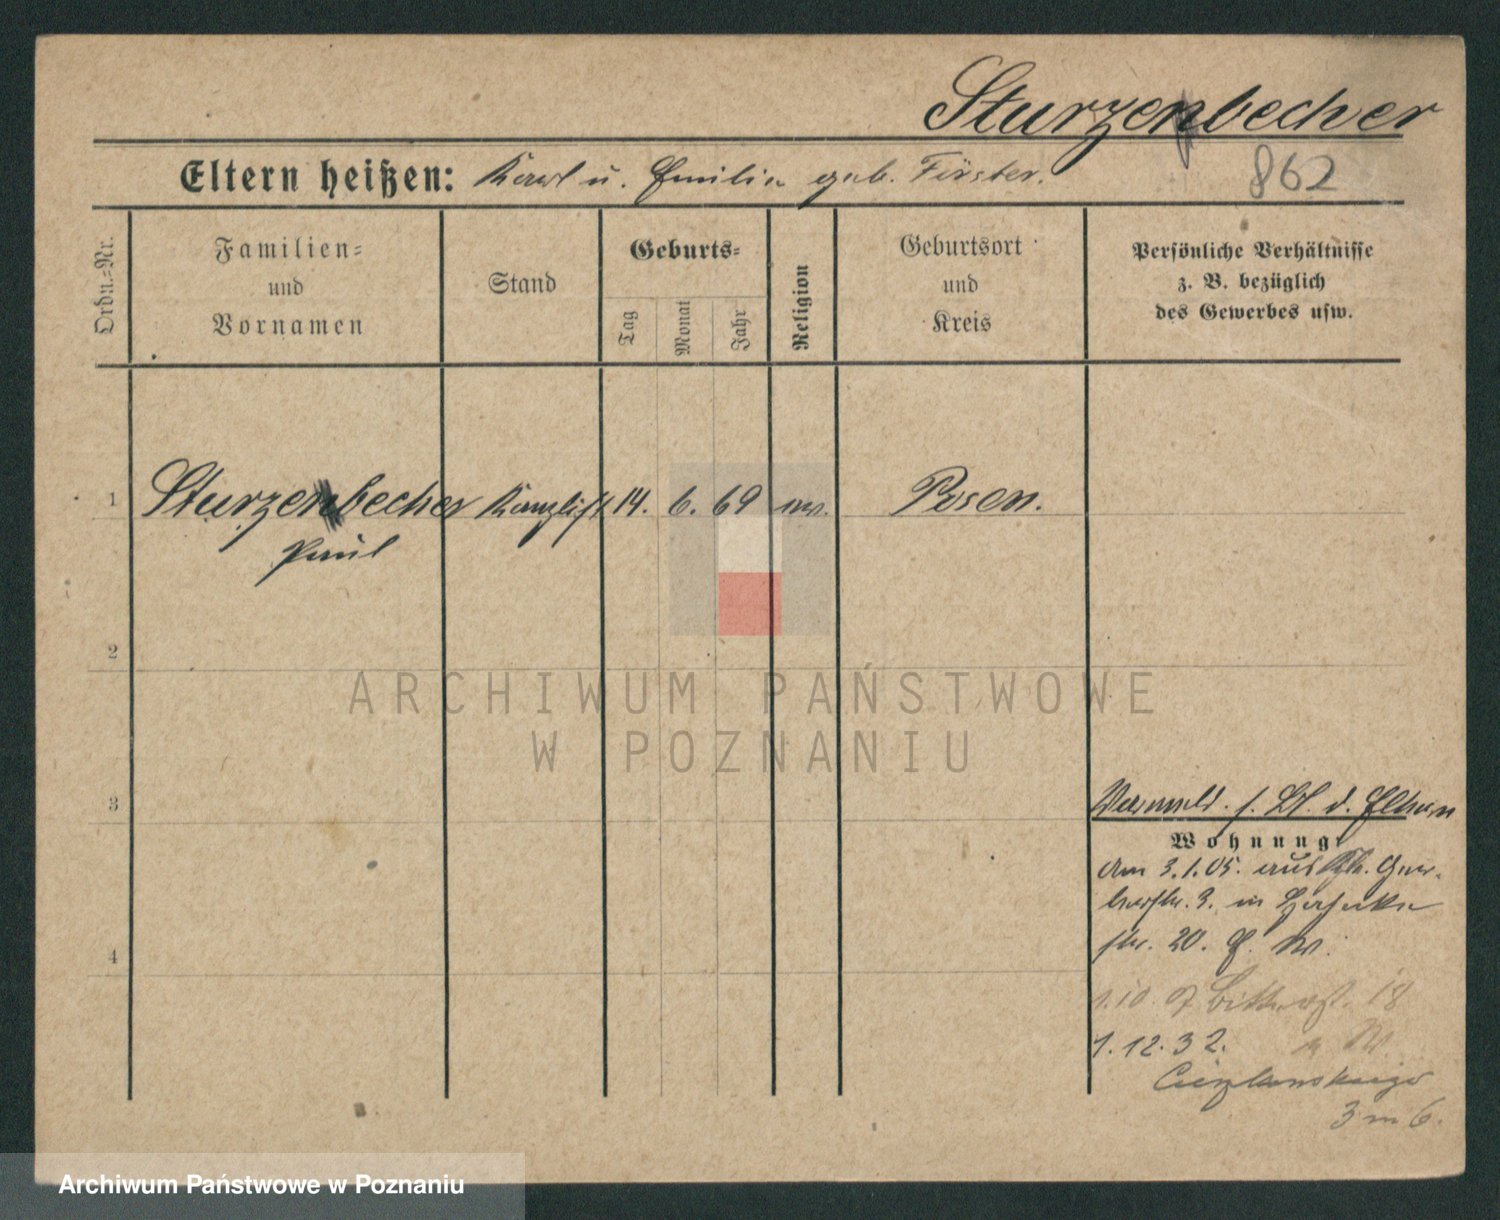 Sturzenbecher
Eltern heißen: Karl u. Emilie geb. Förster.
862
Ordn.-Nr.
Familien-
und
Vornamen
Stand
Geburts-
Tag
Monat
Jahr
Religion
Geburtsort
und
Kreis
Persönliche Verhältnisse
z. B. bezüglich
des Gewerbes usw.
1
Sturzenbecher Kanzlist 14. 6. 69 Posen.
Paul
2
ARCHIWUM PAŃSTWOWE
W POZNANIU
3
d. Eltern
Wohnung
Am 3.1.05. aus
3. in
str. 20.
4
1.10.07 18
1.12.32.
3 m 6.
Archiwum Państwowe w Poznaniu